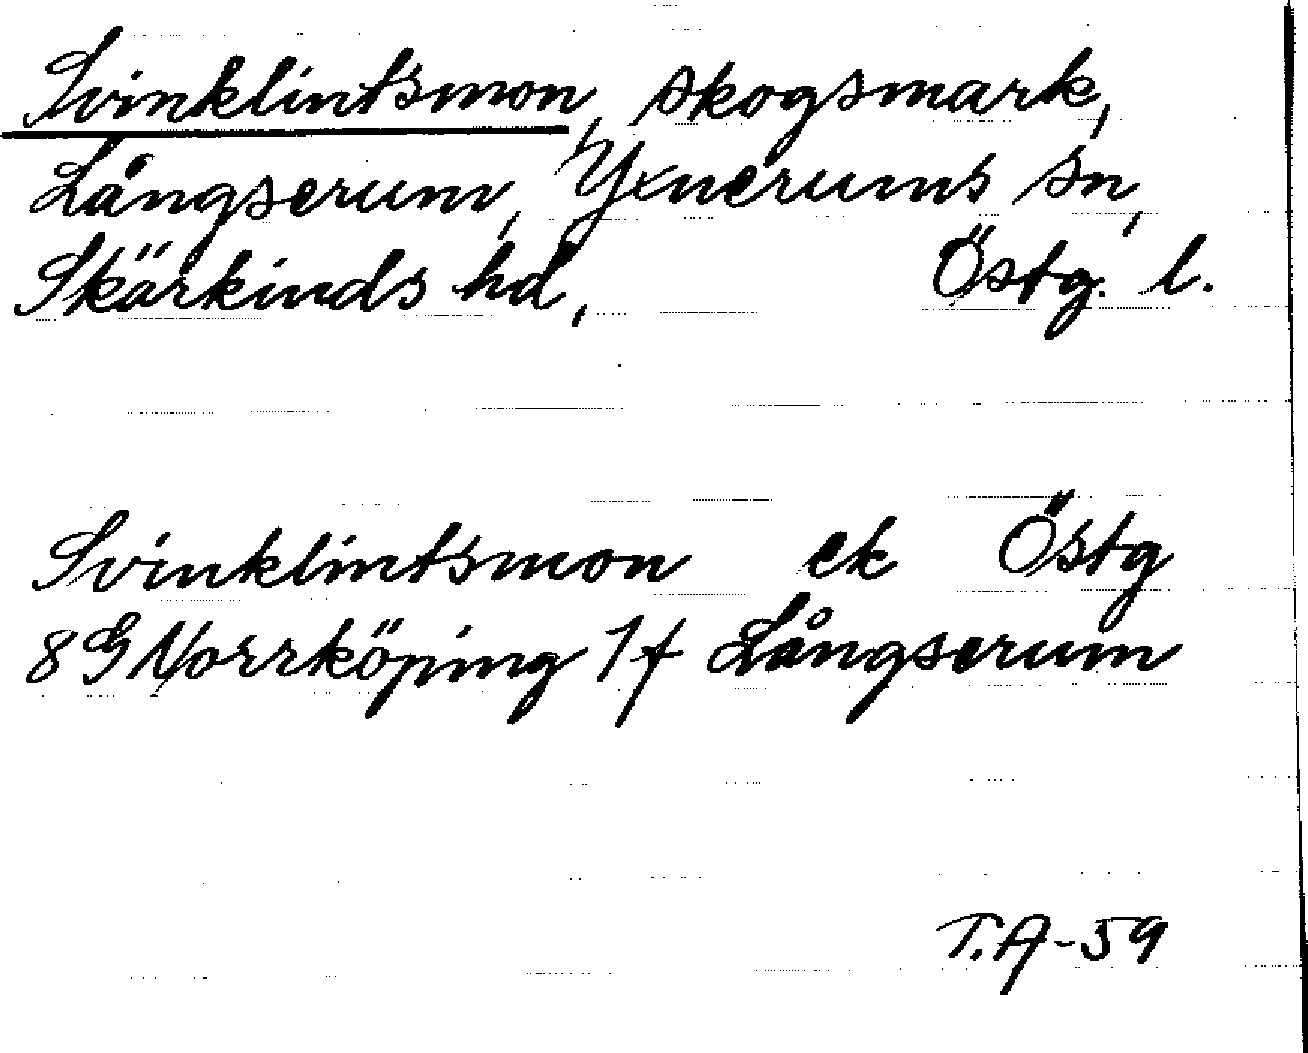 Svinklintsmon, skogsmark,
Långserum, Yxnerums sn,
Skärkinds hd, Östg. l.
Svinklintsmon ek Östg
8G Norrköping 1f Långserum
T.A-59